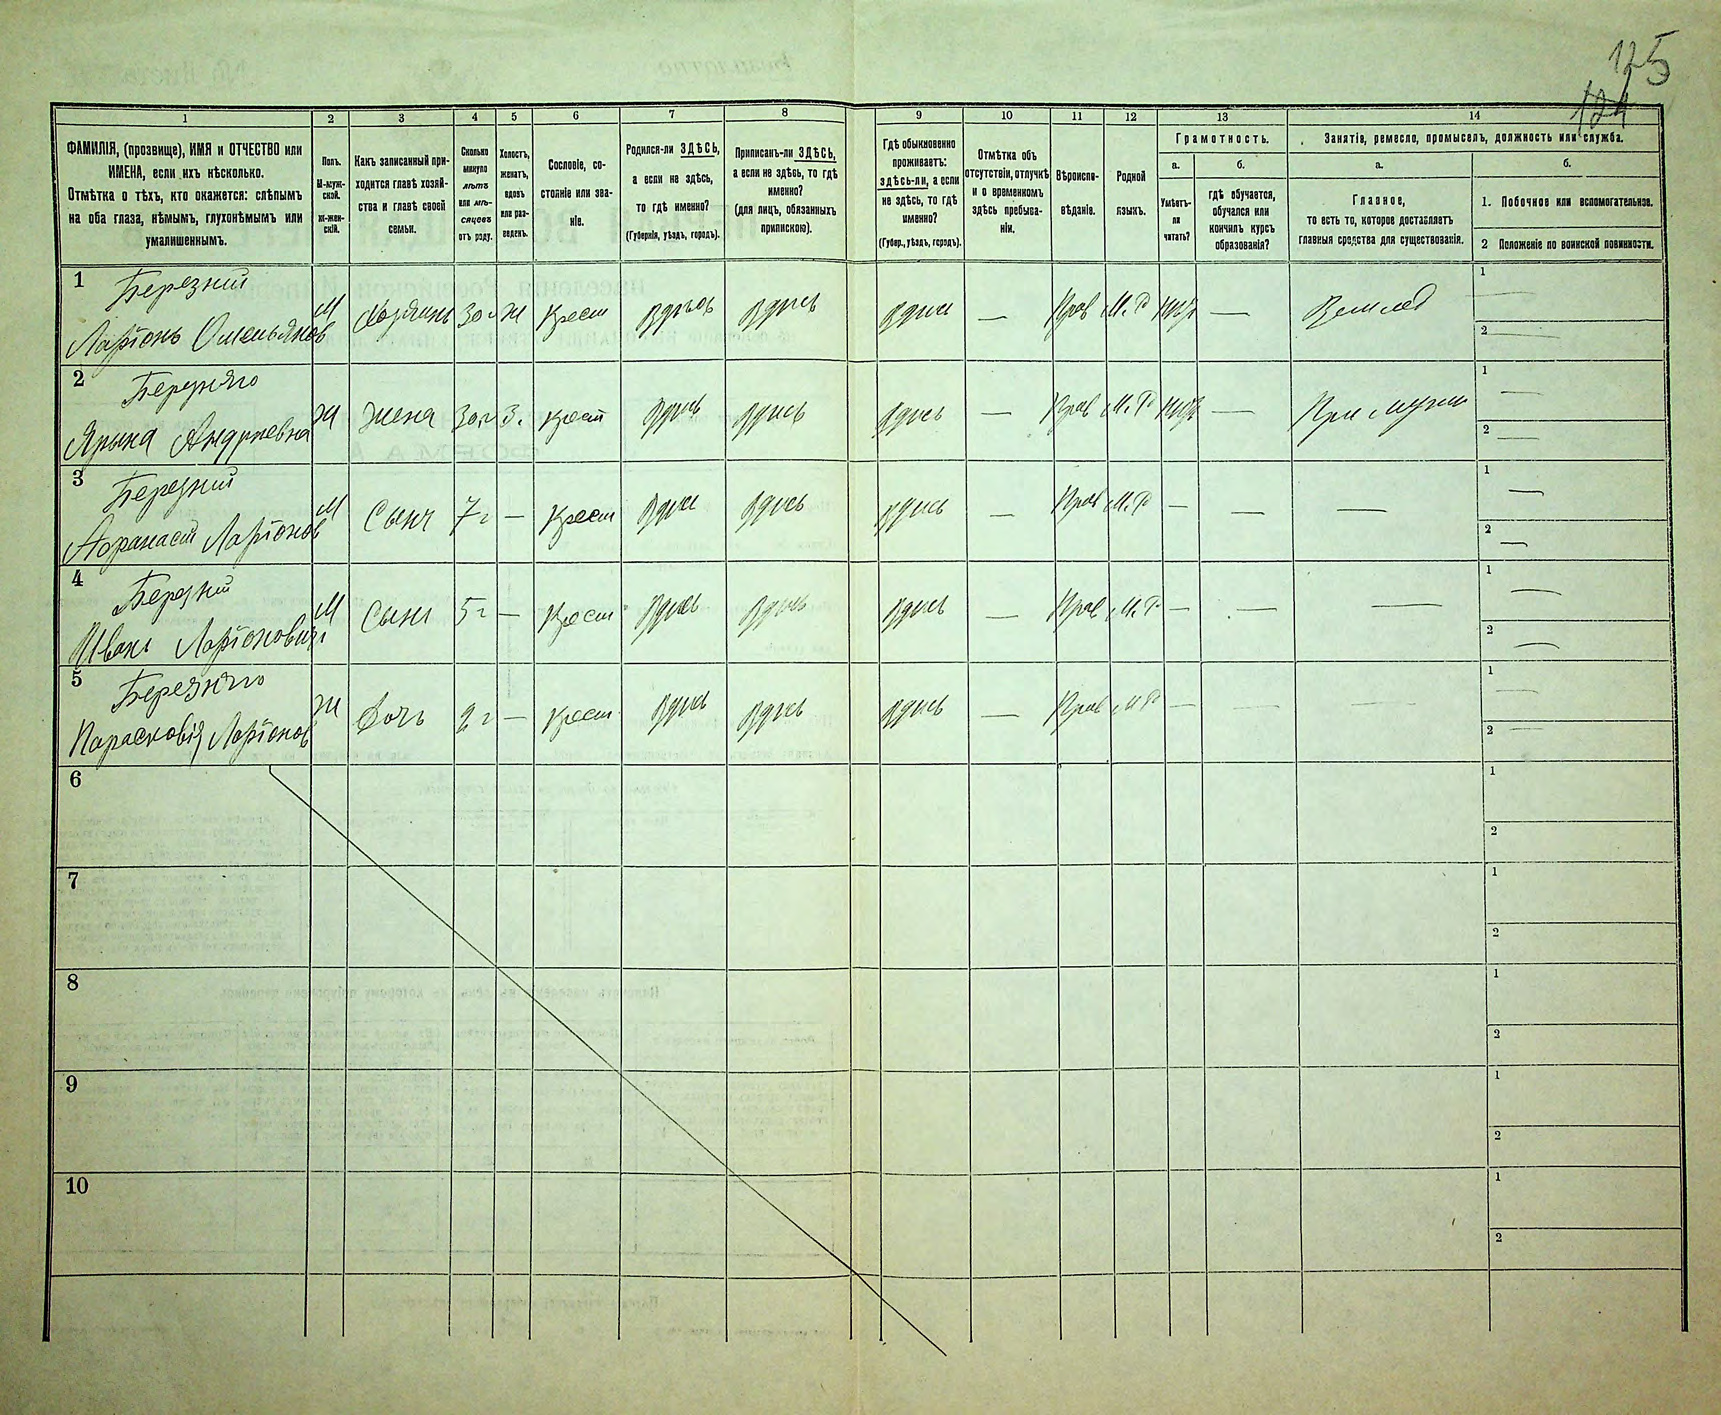 125
124
1 2 3 4 5 6 7 8 9 10 11 12 13 14
ФАМИЛІЯ, (прозвище), ИМЯ и ОТЧЕСТВО или
ИМЕНА, если ихъ нѣсколько.
Отмѣтка о тѣхъ, кто окажется: слѣпымъ
на оба глаза, нѣмымъ, глухонѣмымъ или
умалишеннымъ.
Полъ.
М-муж-
ской.
Ж-жен-
скій.
Какъ записанный при-
ходится главѣ хозяй-
ства и главѣ своей
семьи.
Сколько
минуло
лѣтъ
или мѣ-
сяцевъ
отъ роду.
Холостъ,
женатъ,
вдовъ
или раз-
веденъ.
Сословіе, со-
стояніе или зва-
ніе.
Родился-ли ЗДѢСЬ,
а если не здѣсь,
то гдѣ именно?
(Губернія, уѣздъ, городъ).
Приписанъ-ли ЗДѢСЬ,
а если не здѣсь, то гдѣ
именно?
(для лицъ, обязанныхъ
припискою).
Гдѣ обыкновенно
проживаетъ:
здѣсь-ли, а если
не здѣсь, то гдѣ
именно?
(Губер., уѣздъ, городъ).
Отмѣтка объ
отсутствіи, отлучкѣ
и о временномъ
здѣсь пребыва-
ніи.
Вѣроиспо-
вѣданіе.
Родной
языкъ.
Грамотность.
а.
Умѣетъ-
ли
читать?
б.
гдѣ обучается,
обучался или
кончилъ курсъ
образованія?
Занятіе, ремесло, промыселъ, должность или служба.
а.
Главное,
то есть то, которое доставляетъ
главныя средства для существованія.
б.
1. Побочное или вспомогательное.
2 Положеніе по воинской повинности.
1 Березний
Ларіонъ Омельянов М Хозяинъ 30 г Ж Крест здѣсь здѣсь здѣсь — Прав М.Р. — 1 —
2 —
2 Березняго
Ярына Андреевна Ж Жена 30 г З. Крест здѣсь здѣсь здѣсь — Прав М.Р. — При мужи 1 —
2 —
3 Березний
Афанасій Ларіонов М Сынъ 7 г — Крест здѣсь здѣсь здѣсь — Прав М.Р. — — — 1 —
2 —
4 Березний
Иванъ Ларіонович М Сынъ 5 г — Крест здѣсь здѣсь здѣсь — Прав М.Р. — — — 1 —
2 —
5 Березняго
Парасковія Ларіонов Ж Дочь 2 г — Крест здѣсь здѣсь здѣсь — Прав М.Р. — — — 1 —
2 —
6 1
2
7 1
2
8 1
2
9 1
2
10 1
2